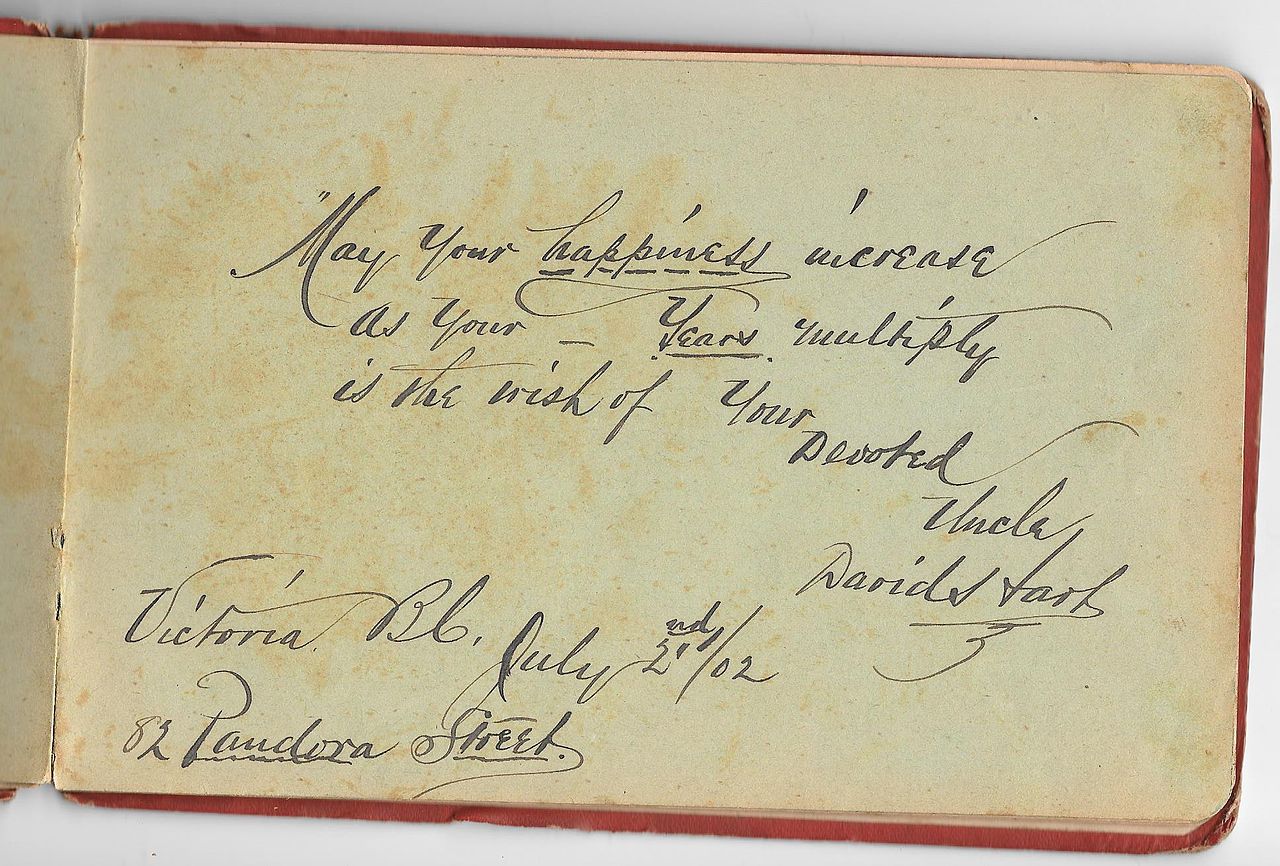 "May Your happiness increase
As Your – Years multiply
is the wish of Your
Devoted
Uncle
David
Victoria. B.C. July 2nd/02
82 Pandora Street.